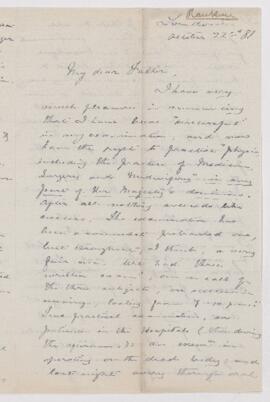 Rankine
London
October 22nd 81
My dear Father,
I have very
much pleasure in announcing
that I have been "successful"
in my examination, and now
have the right to practice "physic
including the practice of Medicine
Surgery and Midwifery" in any
part of Her Majesty's dominions.
After all nothing succeeds like
success. The examination has
been a somewhat protracted one,
but throughout, I think, a very
fair one. We had three
written exams, one in each of
the three subjects, on successive
evenings, lasting from 7-10 p.m.
practical examination, on
patients in the Hospitals (then during
the afternoon, to an exam in
operating on the dead body, and
last night away through oral